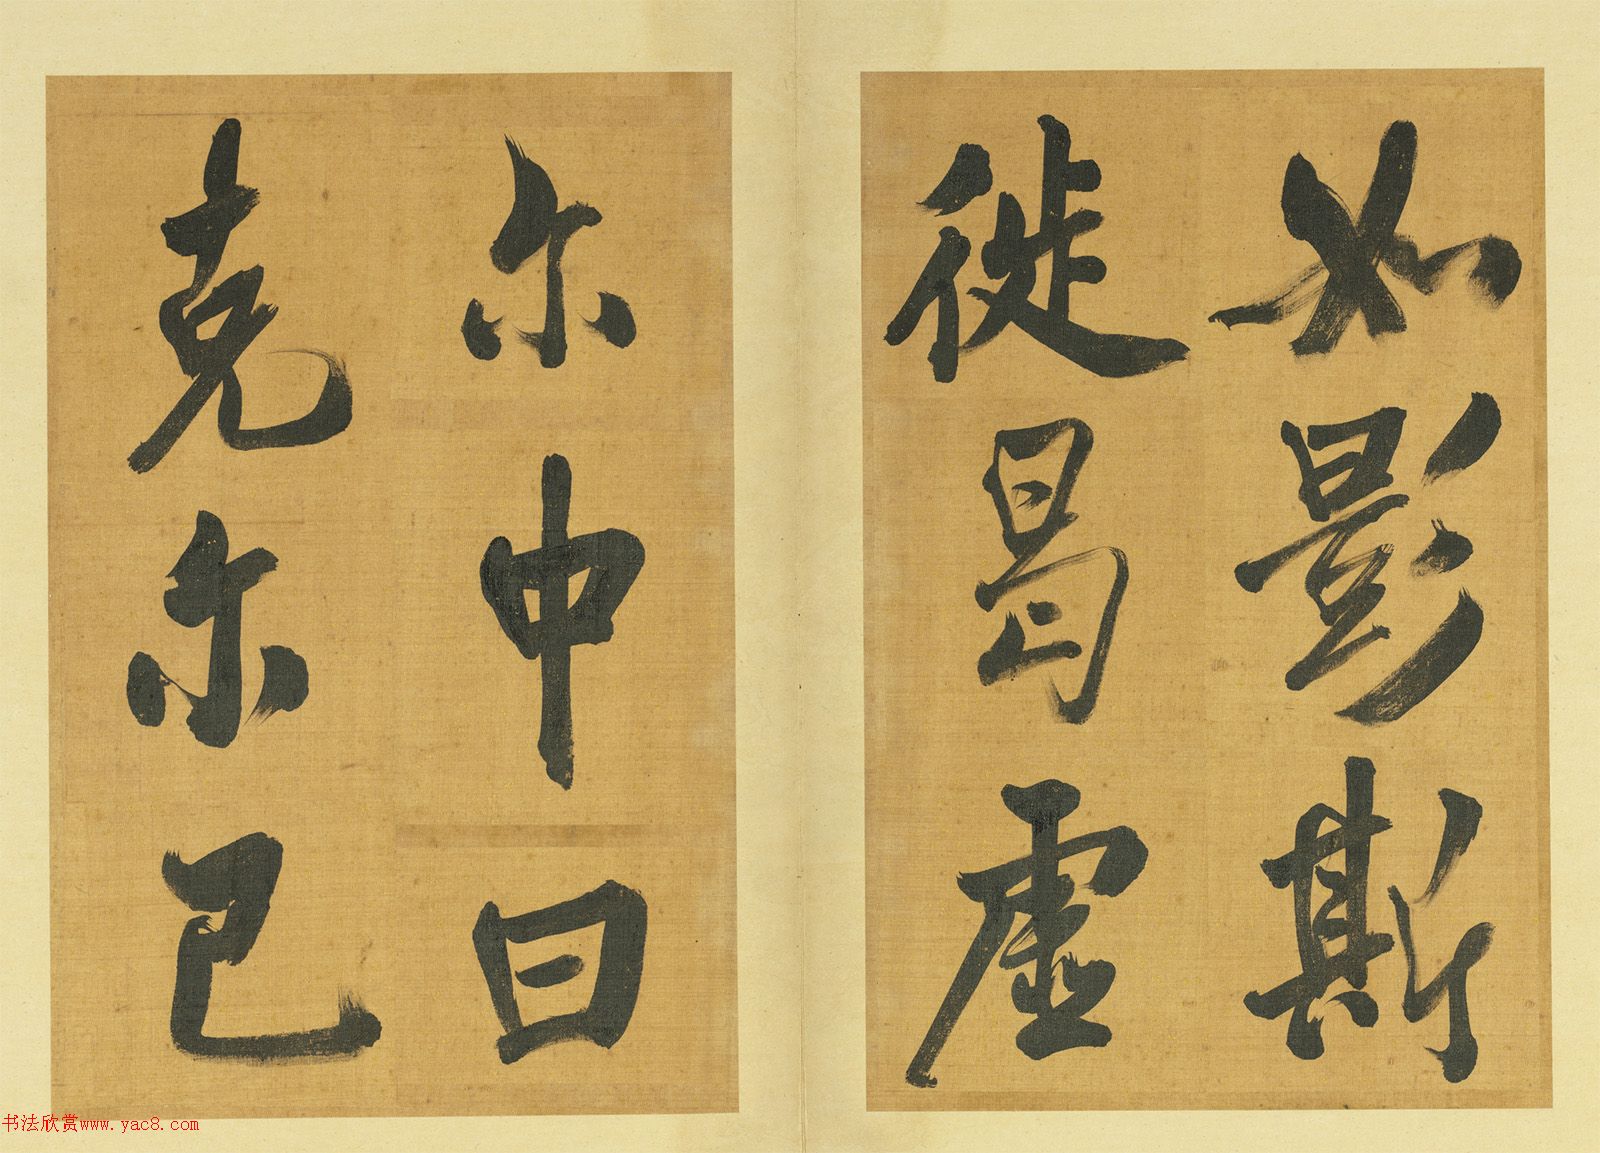 如影斯
徙曷虚
尔中曰
克尔己
书法欣赏www.yac8.com